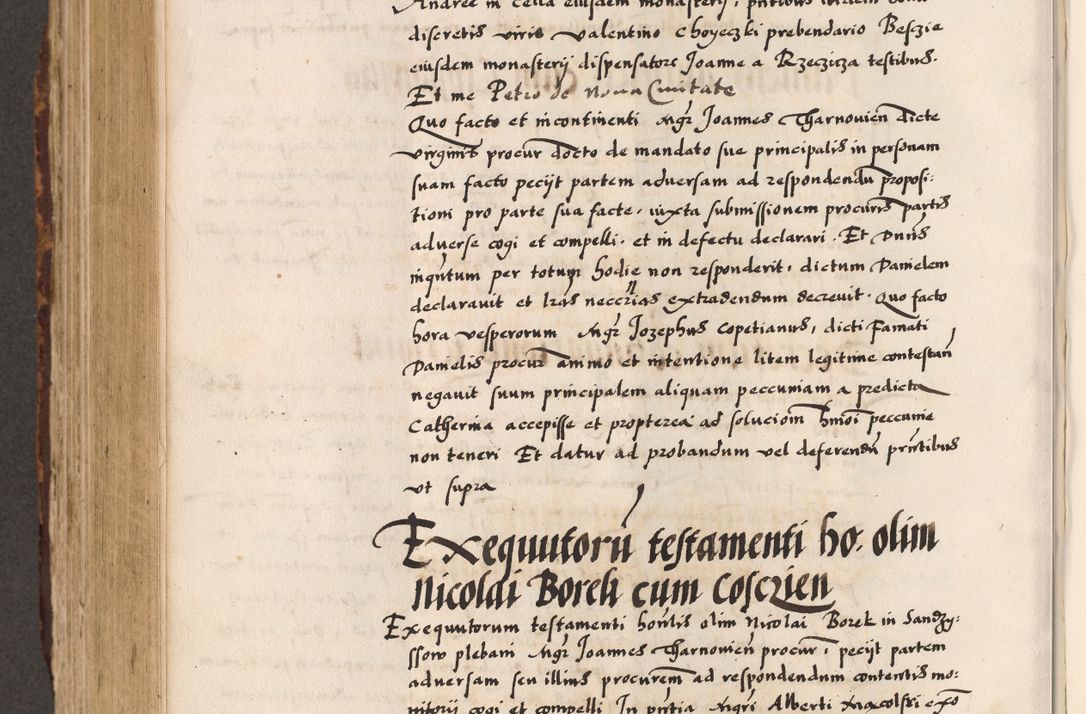 Andree in cella eiusdem monasterij, pntibus
discretis viris Valentino Choyeczki prebendario Besczie
eiusdem monasterij dispensatore Joanne a Rzeczicza testibus.
Et me Petro de Nova Civitate
Quo facto et incontinenti Mgr Joannes Tharnovien dicte
virginis procur docto de mandato sue principalis in personam
suam facto pecijt partem adversam ad respondendu proposi:
tioni pro parte sua facte, iuxta submissionem procuris partis
adverse cogi et compelli. et in defectu declarari. Et Dnus
inqntum per totum hodie non responderit, dictum Danielem
declaravit et lras neccrias extradendum decrevit. Quo facto
hora vesperorum Mgr Jozephus Copetianus, dicti Famati
Danielis procur animo et intentione litem legitime contestan
negavit suum principalem aliquam peccuniam a predicta
Catherina accepisse et propterea ad solucioin hmoi peccunie
non teneri Et datur ad probandum vel deferendu pntibus
ut supra
Exequutoru testamenti ho: olim
Nicolai Borek cum Cosczien
Exequutorum testamenti honlis olim Nicolai Borek in Sandzy:
ssow plebani Mgr Joannes Tharnovien procur, pecijt partem
adversam seu illius procurem ad respondendum contentis mo:
nitorij cogi et compelli In pntia Mgri Alberti